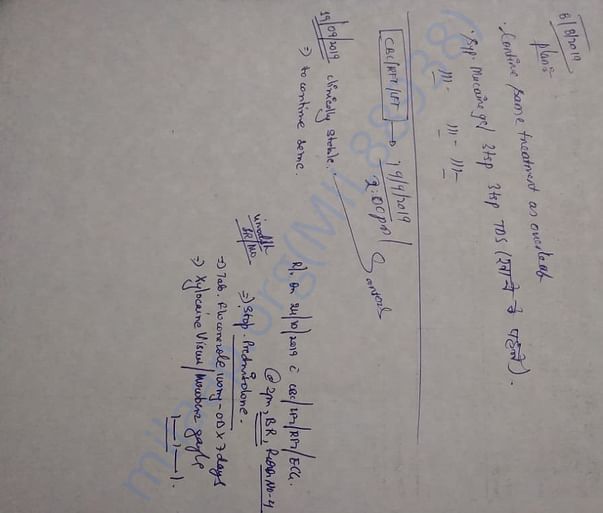 6/8/2019
Plan:-
• Continue same treatment as overleaf
• Syp. Mucaine gel 3tsp 3tsp TDS (खाने से पहले).
CBC/RFT/LFT → 19/9/2019
2:00pm/
19/09/2019 clinically stable.
⇒ to continue same.
R/. on 24/10/2019 c̄ CBC/LFT/RFT/ECG.
@ 2pm, BR, Room No-4
SR/MO
⇒ Stop. Prednisolone.
⇒ Tab. Fluconazole - OD x 7 days
⇒ Xylocaine Viscus/ gargle